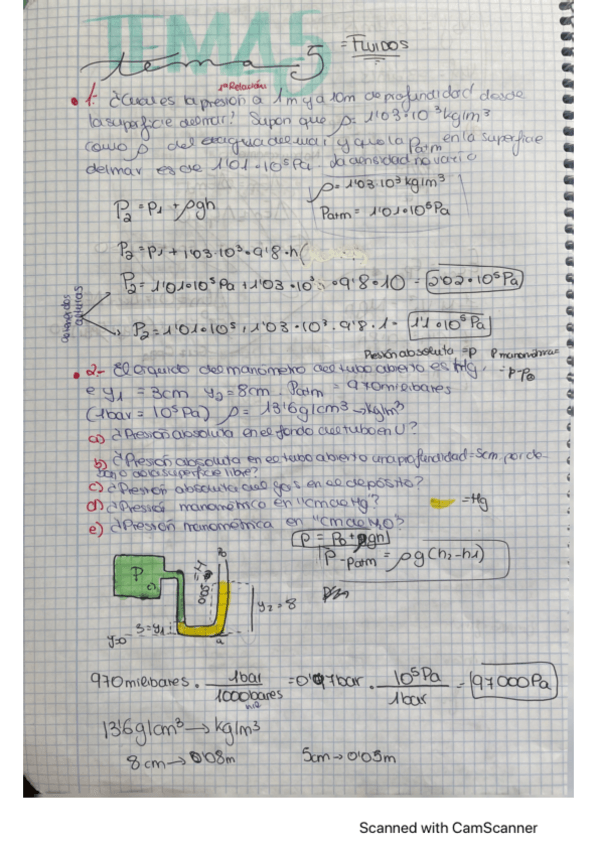 TEMA 5
tema 5 = FLUIDOS
1ª Relación
1- ¿Cual es la presión a 1m y a 10m de profundidad desde
la superficie del mar? Supon que ρ = 1'03·10³ kg/m³
como ρ del agua del mar y que la Patm en la superficie
del mar es de 1'01·10⁵ Pa. La densidad no varia
P₂ = P₁ + ρgh
ρ = 1'03·10³ kg/m³
Patm = 1'01·10⁵ Pa
P₂ = P₁ + 1'03·10³·9'8·h
P₂ = 1'01·10⁵ Pa + 1'03·10³ · 9'8·10 = 2'02·10⁵ Pa
alturas
P₂ = 1'01·10⁵ + 1'03·10³·9'8·1 = 1'1·10⁵ Pa
Presión absoluta = p
P manométrica = p-p₀
2- El líquido del manómetro del tubo abierto es Hg,
e y₁ = 3cm y₂ = 8cm Patm = 970 milibares
(1bar = 10⁵ Pa) ρ = 13'6 g/cm³ → kg/m³
a) ¿Presión absoluta en el fondo del tubo en U?
b) ¿Presión absoluta en el tubo abierto una profundidad = 5cm por de-
bajo de la superficie libre?
c) ¿Presión absoluta del gas en el depósito?
d) ¿Presión manométrica en "cm de Hg"?
= Hg
e) ¿Presión manométrica en "cm de H₂O"?
P = P₀ + ρgh
P - Patm = ρg(h₂-h₁)
P
b
c
y₂ = 8
3 = y₁
y=0
a
970 milibares · 1bar / 1000 milibares = 0'97bar · 10⁵ Pa / 1bar = 97000 Pa
13'6 g/cm³ → kg/m³
8cm → 0'08m 5cm → 0'05m
Scanned with CamScanner